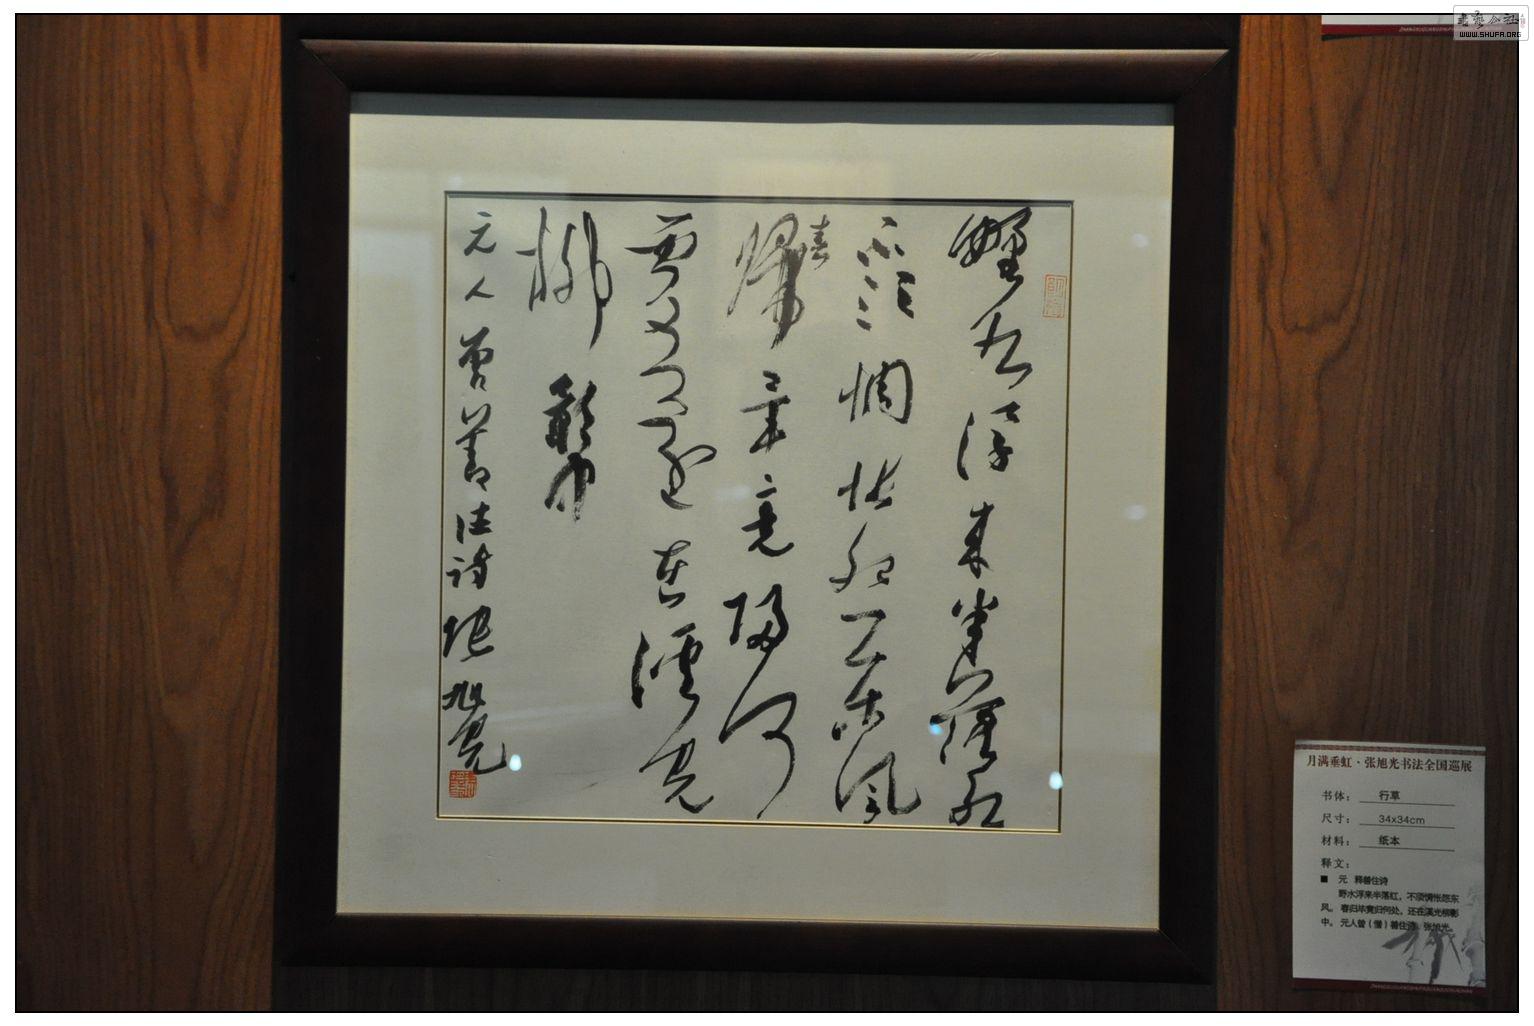 野水浮来半落红
不须惆怅怨东风
春归毕竟归何
处还在溪光
柳影中
元人曾善住诗张旭光
月满垂虹·张旭光书法全国巡展
书体：行草
尺寸：34x34cm
材料：纸本
释文：
■ 元 释善住诗
野水浮来半落红，不须惆怅怨东
风。春归毕竟归何处，还在溪光柳影
中。元人曾（僧）善住诗，张旭光。
WWW.SHUFA.ORG